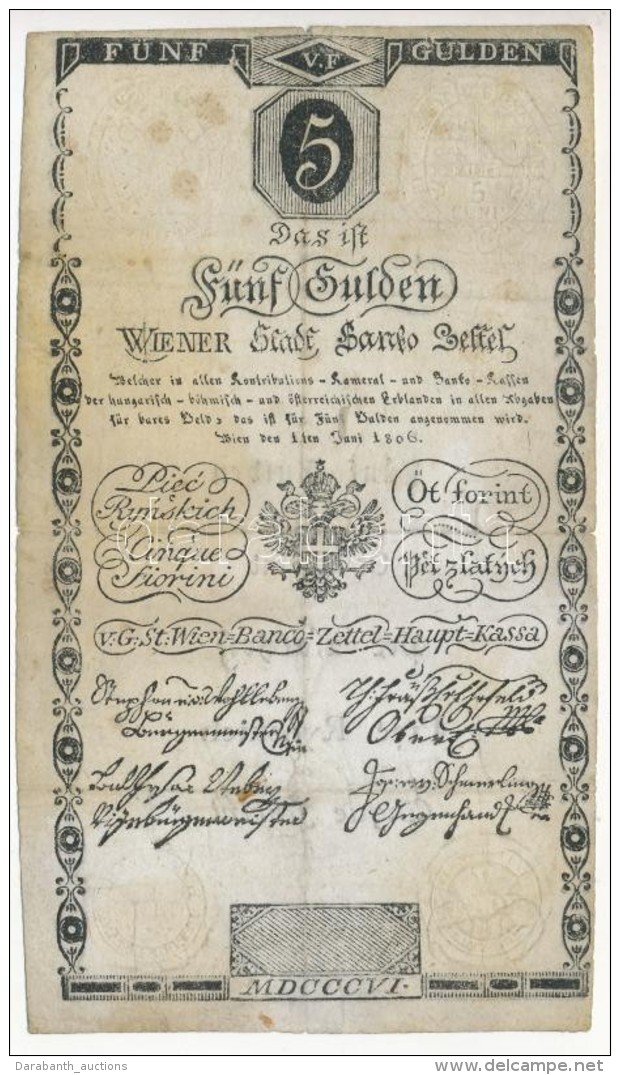 FÜNF V.F GULDEN
5
Das ist
Fünf Gulden
WIENER Stadt Banko Zettel
Welcher in allen Kontributions- Kameral- und Banko-Kassen
der hungarisch- böhmisch- und österreichischen Erblanden in allen Abgaben
für bares Geld, das ist für Fünf Gulden angenommen wird.
Wien den 1ten Juni 1806.
Pieć
Ryńskich
Cinque
Fiorini
Öt forint
Pět zlatých
v:G:St:Wien=Banco=Zettel=Haupt=Kassa
Stephan
Burgermeister
Ober
Vizebürgermeister
Schmerling
Gegenhand
MDCCCVI.
Darabanth_auctions
delcampe.net